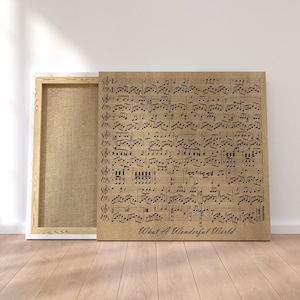 What A Wonderful World